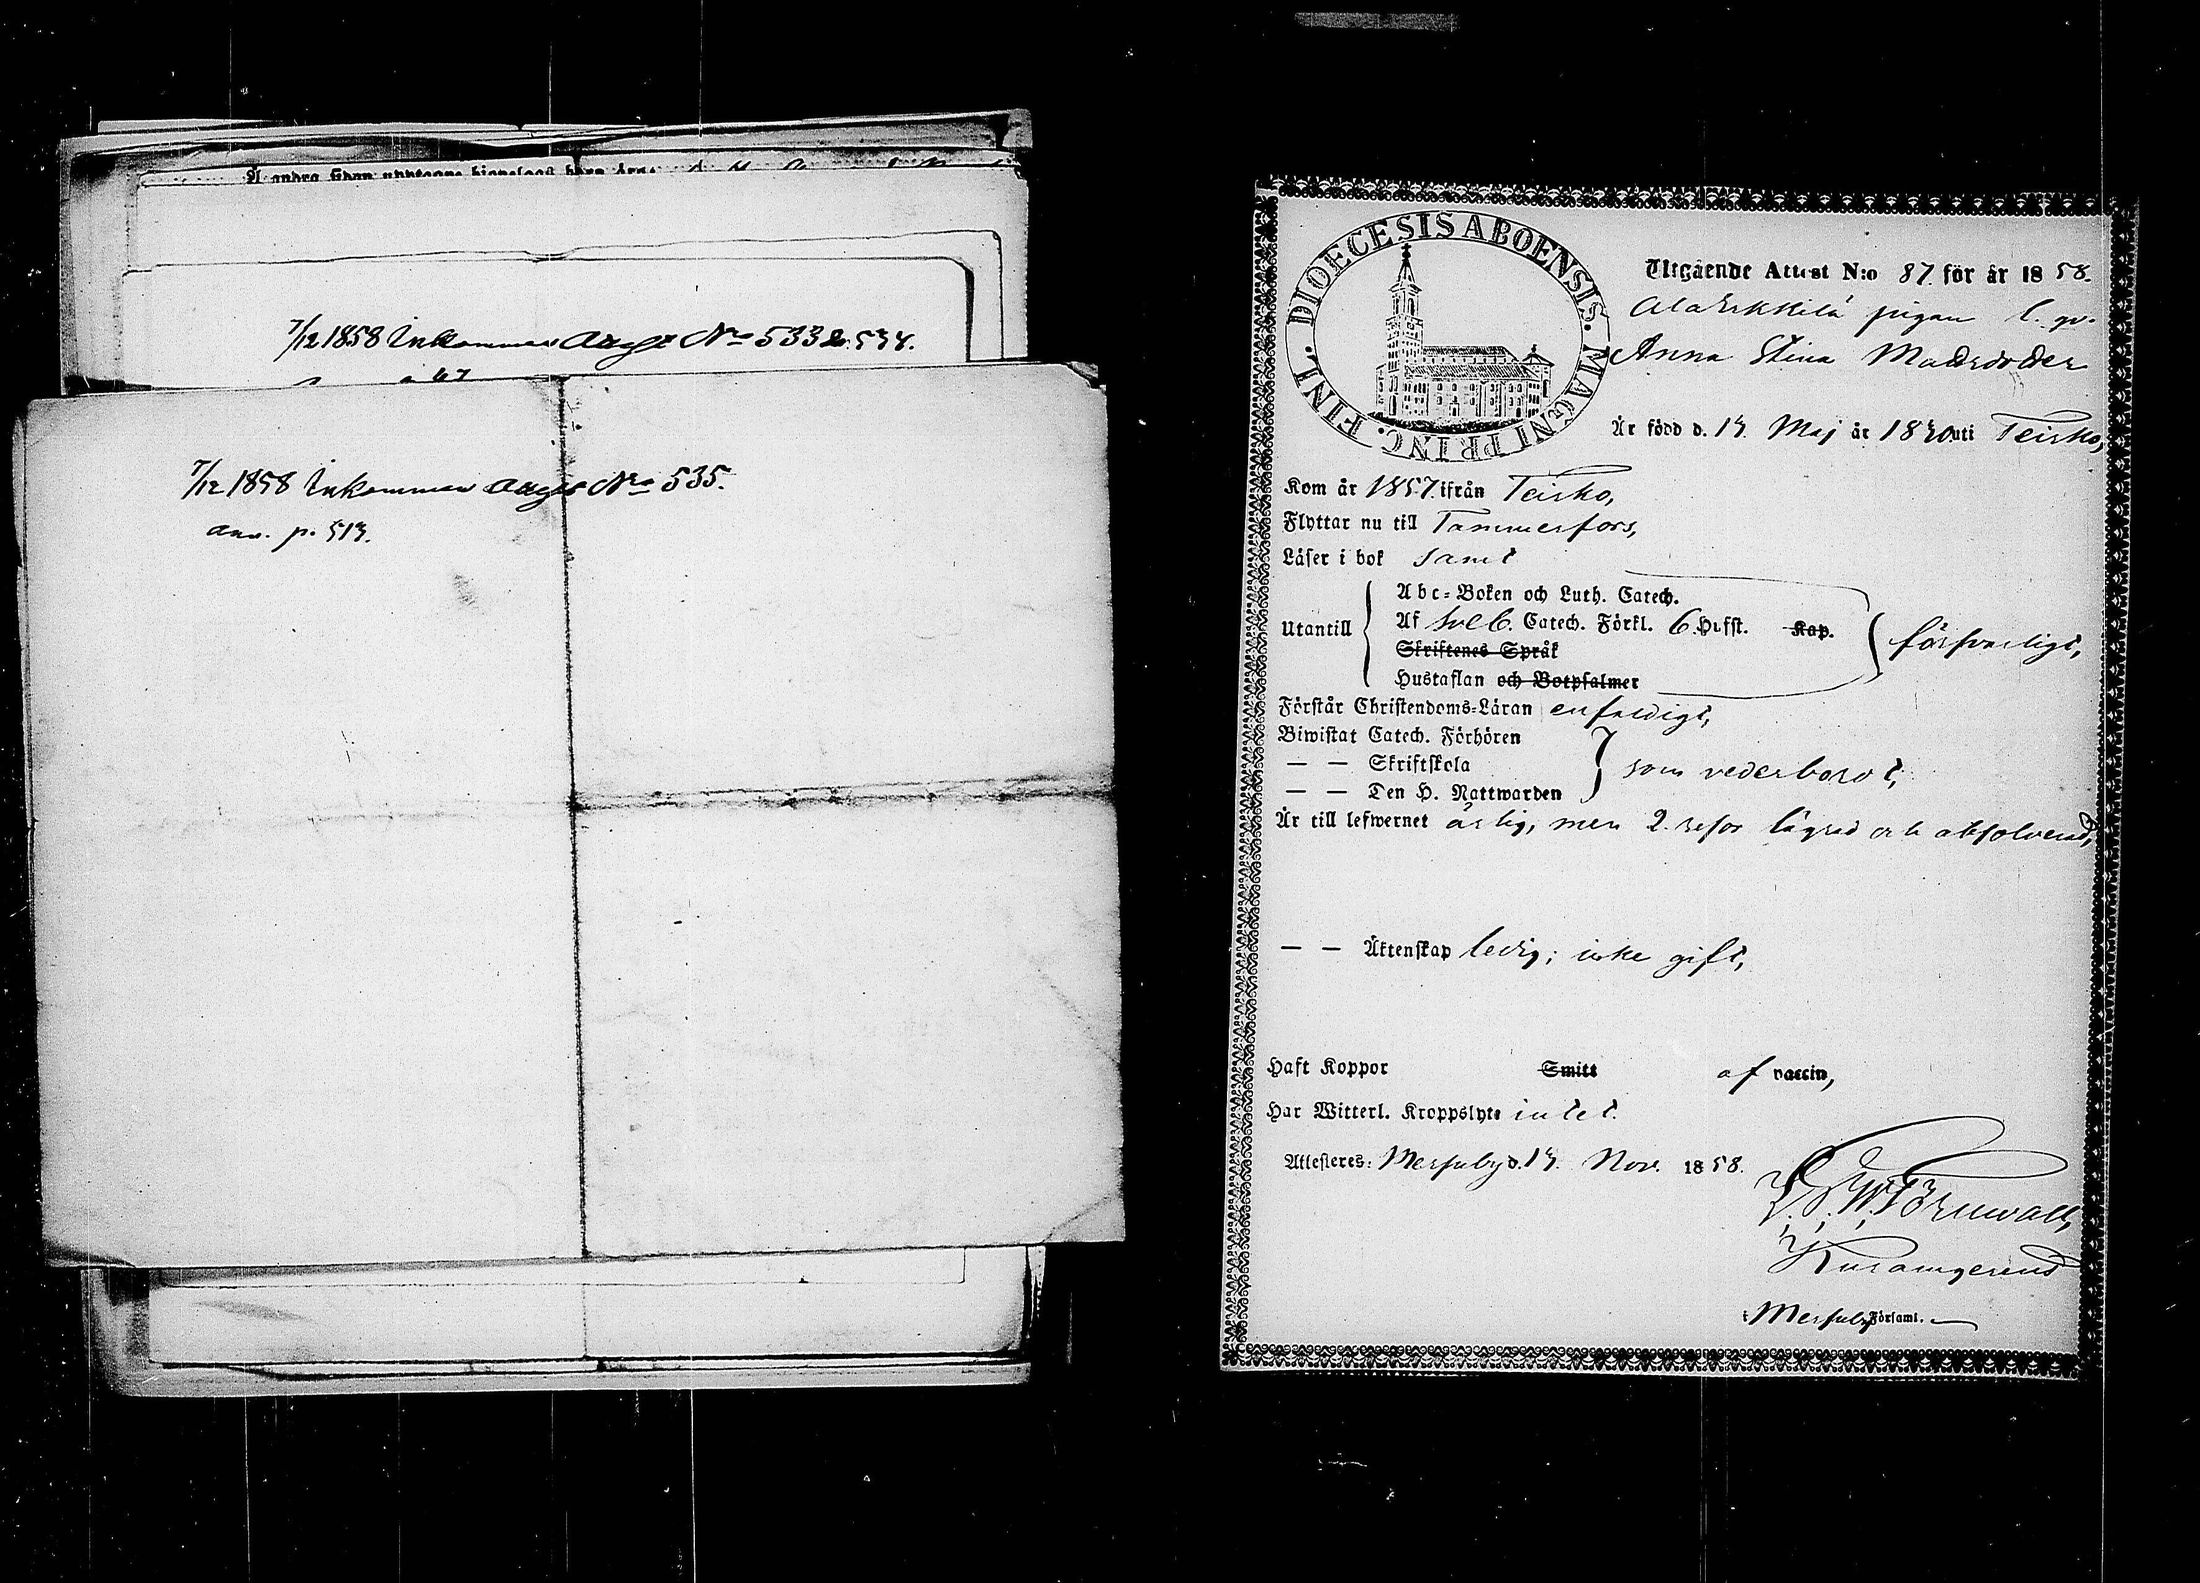 7/12 1858 Inkommen Attest No 533 & 534.
7/12 1858 Inkommen No 535.
anv. p. 513.
FINL. DIOECESIS ABOENSIS. MAGNI PRINC.
Utgående Attest N:o 87. för år 1858.
Ala Erkkilä pigan l. qv.
Anna Stina Madsdotter
Är född d. 14. Maj år 1830 uti Teisko,
Kom år 1857. ifrån Teisko,
Flyttar nu till Tammerfors,
Läser i bok samt
Utantill
Abc-Boken och Luth. Catech.
Af Sveb. Catech. Förkl. 6. Hufst. Kap.
Skriftenes Språk
Hustaflan och Botpsalmer
försvarligt,
Förstår Christendoms-Läran enfaldigt,
Biwistat Catech. Förhören
— — Skriftskola
— — Den H. Nattwarden
som vederbort,
Är till lefwernet ärlig, men 2. resor lägrad och absolverad,
— — Äktenskap ledig; icke gift,
Haft Koppor Smitt af vaccin,
Har Witterl. Kroppslyte intet.
Attesteres: Messuby d. 14. Nov. 1858.
Törnwall,
i Messuby Församl.